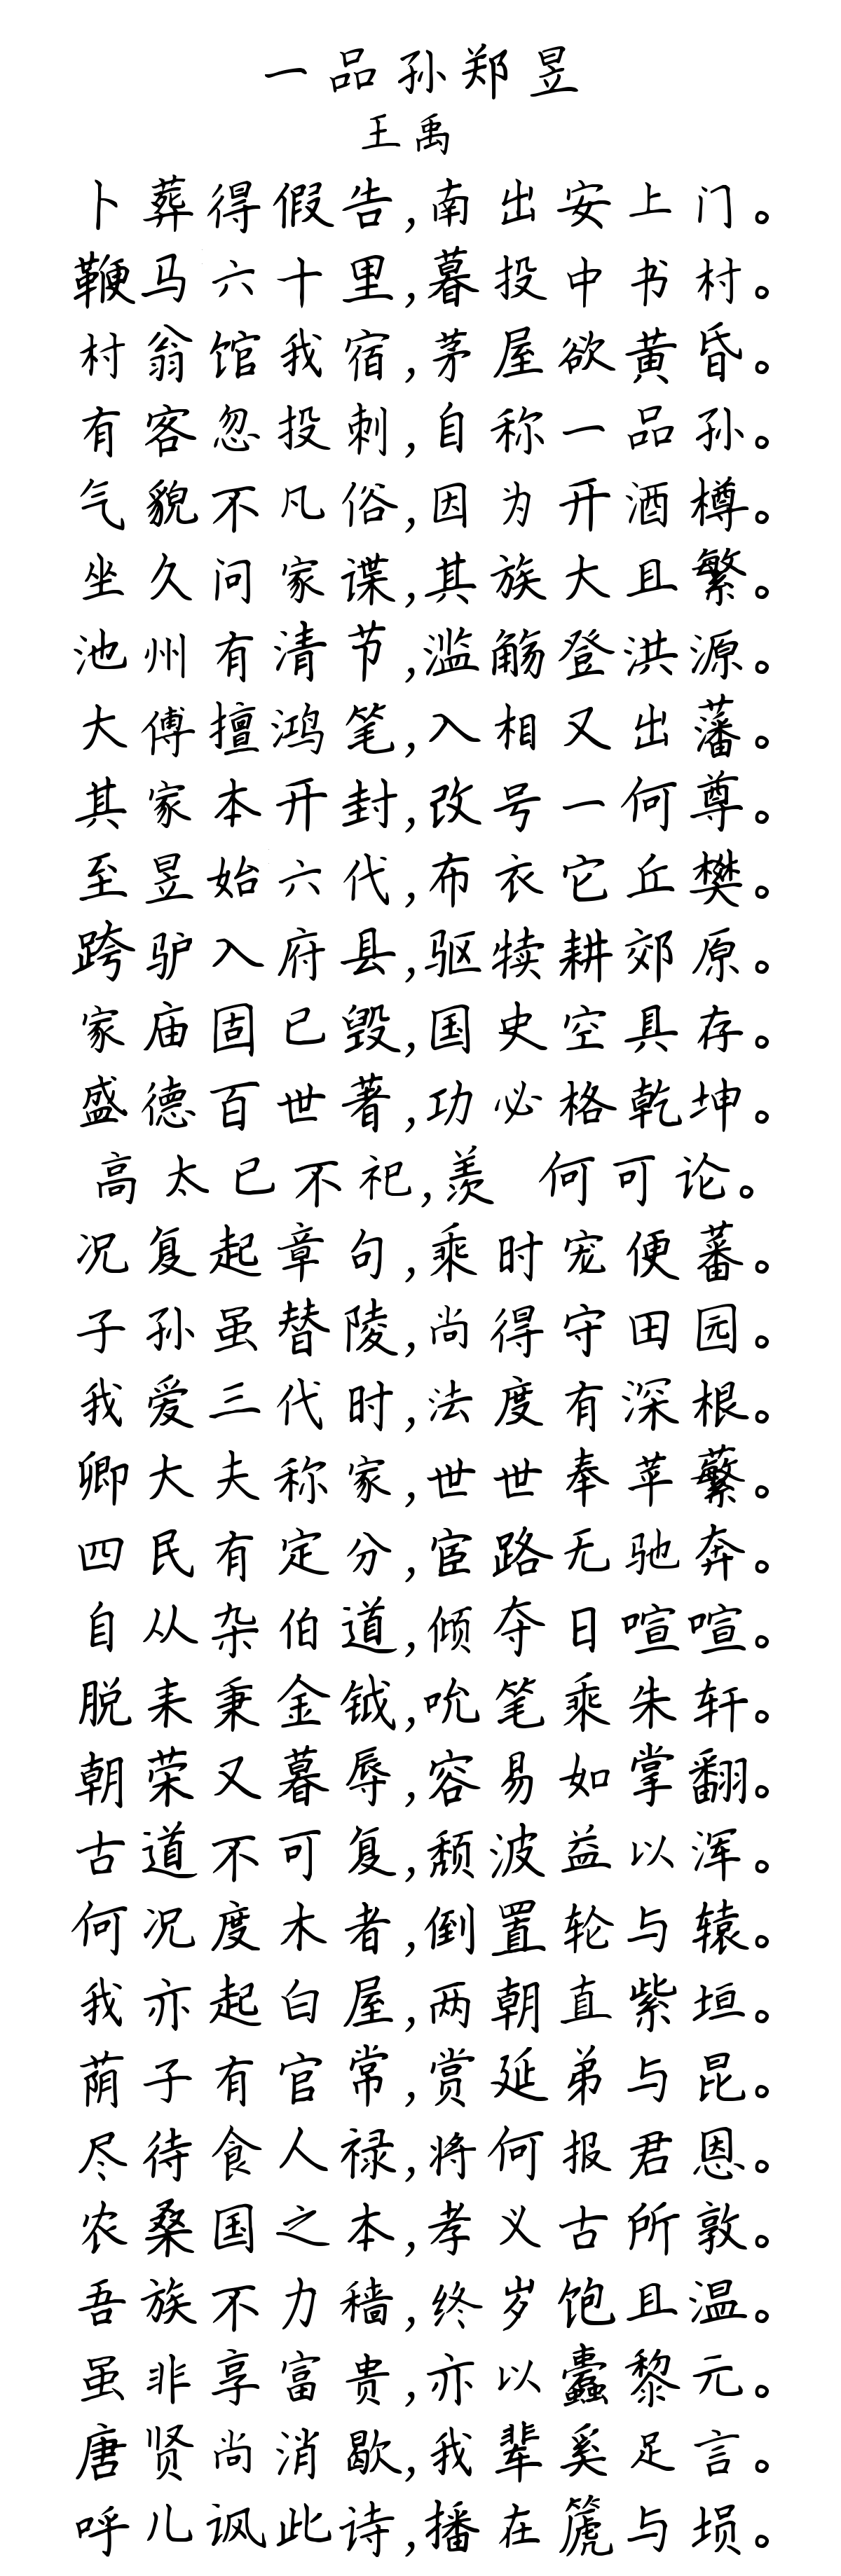 一品孙郑昱
王禹
卜葬得假告,南出安上门。
鞭马六十里,暮投中书村。
村翁馆我宿,茅屋欲黄昏。
有客忽投刺,自称一品孙。
气貌不凡俗,因为开酒樽。
坐久问家谍,其族大且繁。
池州有清节,滥觞登洪源。
大傅擅鸿笔,入相又出藩。
其家本开封,改号一何尊。
至昱始六代,布衣它丘樊。
跨驴入府县,驱犊耕郊原。
家庙固已毁,国史空具存。
盛德百世著,功必格乾坤。
高太已不祀,羡 何可论。
况复起章句,乘时宠便蕃。
子孙虽替陵,尚得守田园。
我爱三代时,法度有深根。
卿大夫称家,世世奉苹蘩。
四民有定分,宦路无驰奔。
自从杂伯道,倾夺日喧喧。
脱耒秉金钺,吮笔乘朱轩。
朝荣又暮辱,容易如掌翻。
古道不可复,颓波益以浑。
何况度木者,倒置轮与辕。
我亦起白屋,两朝直紫垣。
荫子有官常,赏延弟与昆。
尽待食人禄,将何报君恩。
农桑国之本,孝义古所敦。
吾族不力穑,终岁饱且温。
虽非享富贵,亦以蠹黎元。
唐贤尚消歇,我辈奚足言。
呼儿讽此诗,播在篪与埙。